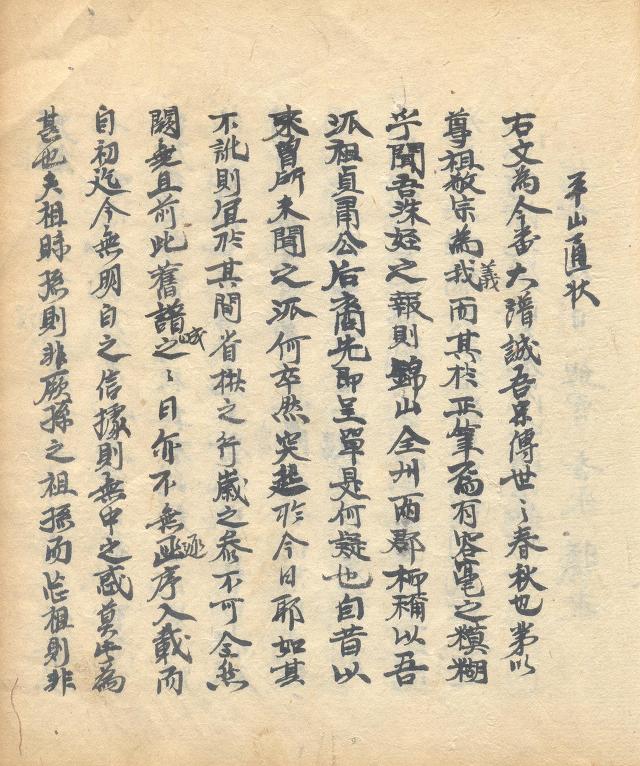 平山通狀
右文爲今番大譜誠吾宗傳世之春秋也第以
尊祖敬宗爲我義而其於正筆不向有容毫之糢糊
乎聞吾姪之報則錦山全州兩郡柳稱以吾
派祖貞肅公后裔先即呈單是何疑也自昔以
來曾所未聞之派何卒然突起於今日耶如其
不訛則宜於其間省楸之行歲之參不可全然
闕無且前此舊譜之成之日亦不無函派序入載而
自初迄今無明白之信據則無中之惑莫此爲
甚也夫祖歸孫則非厥孫之祖孫而忘祖則非